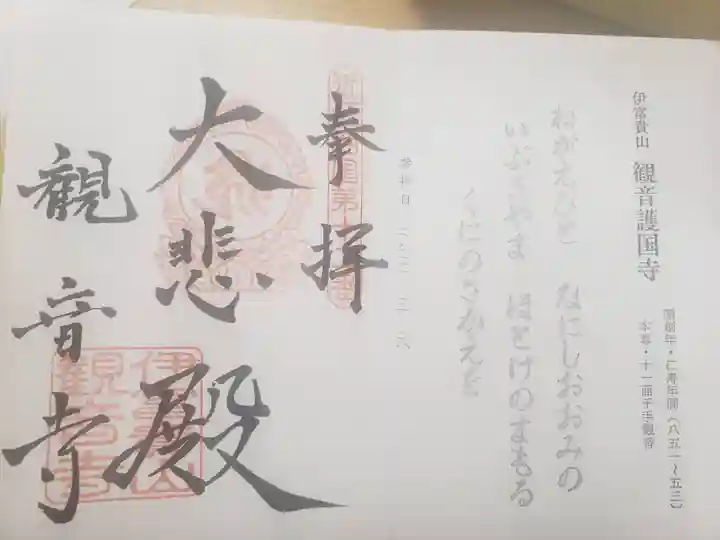 伊富貴山 観音護国寺
開創年・仁寿年間(八五一~五三)
本尊・十一面千手観音
ねがえひと なにしおおみの
いぶきやま ほとけのまもる
くにのさかえを
参拝日
奉拝
大悲殿
観音寺